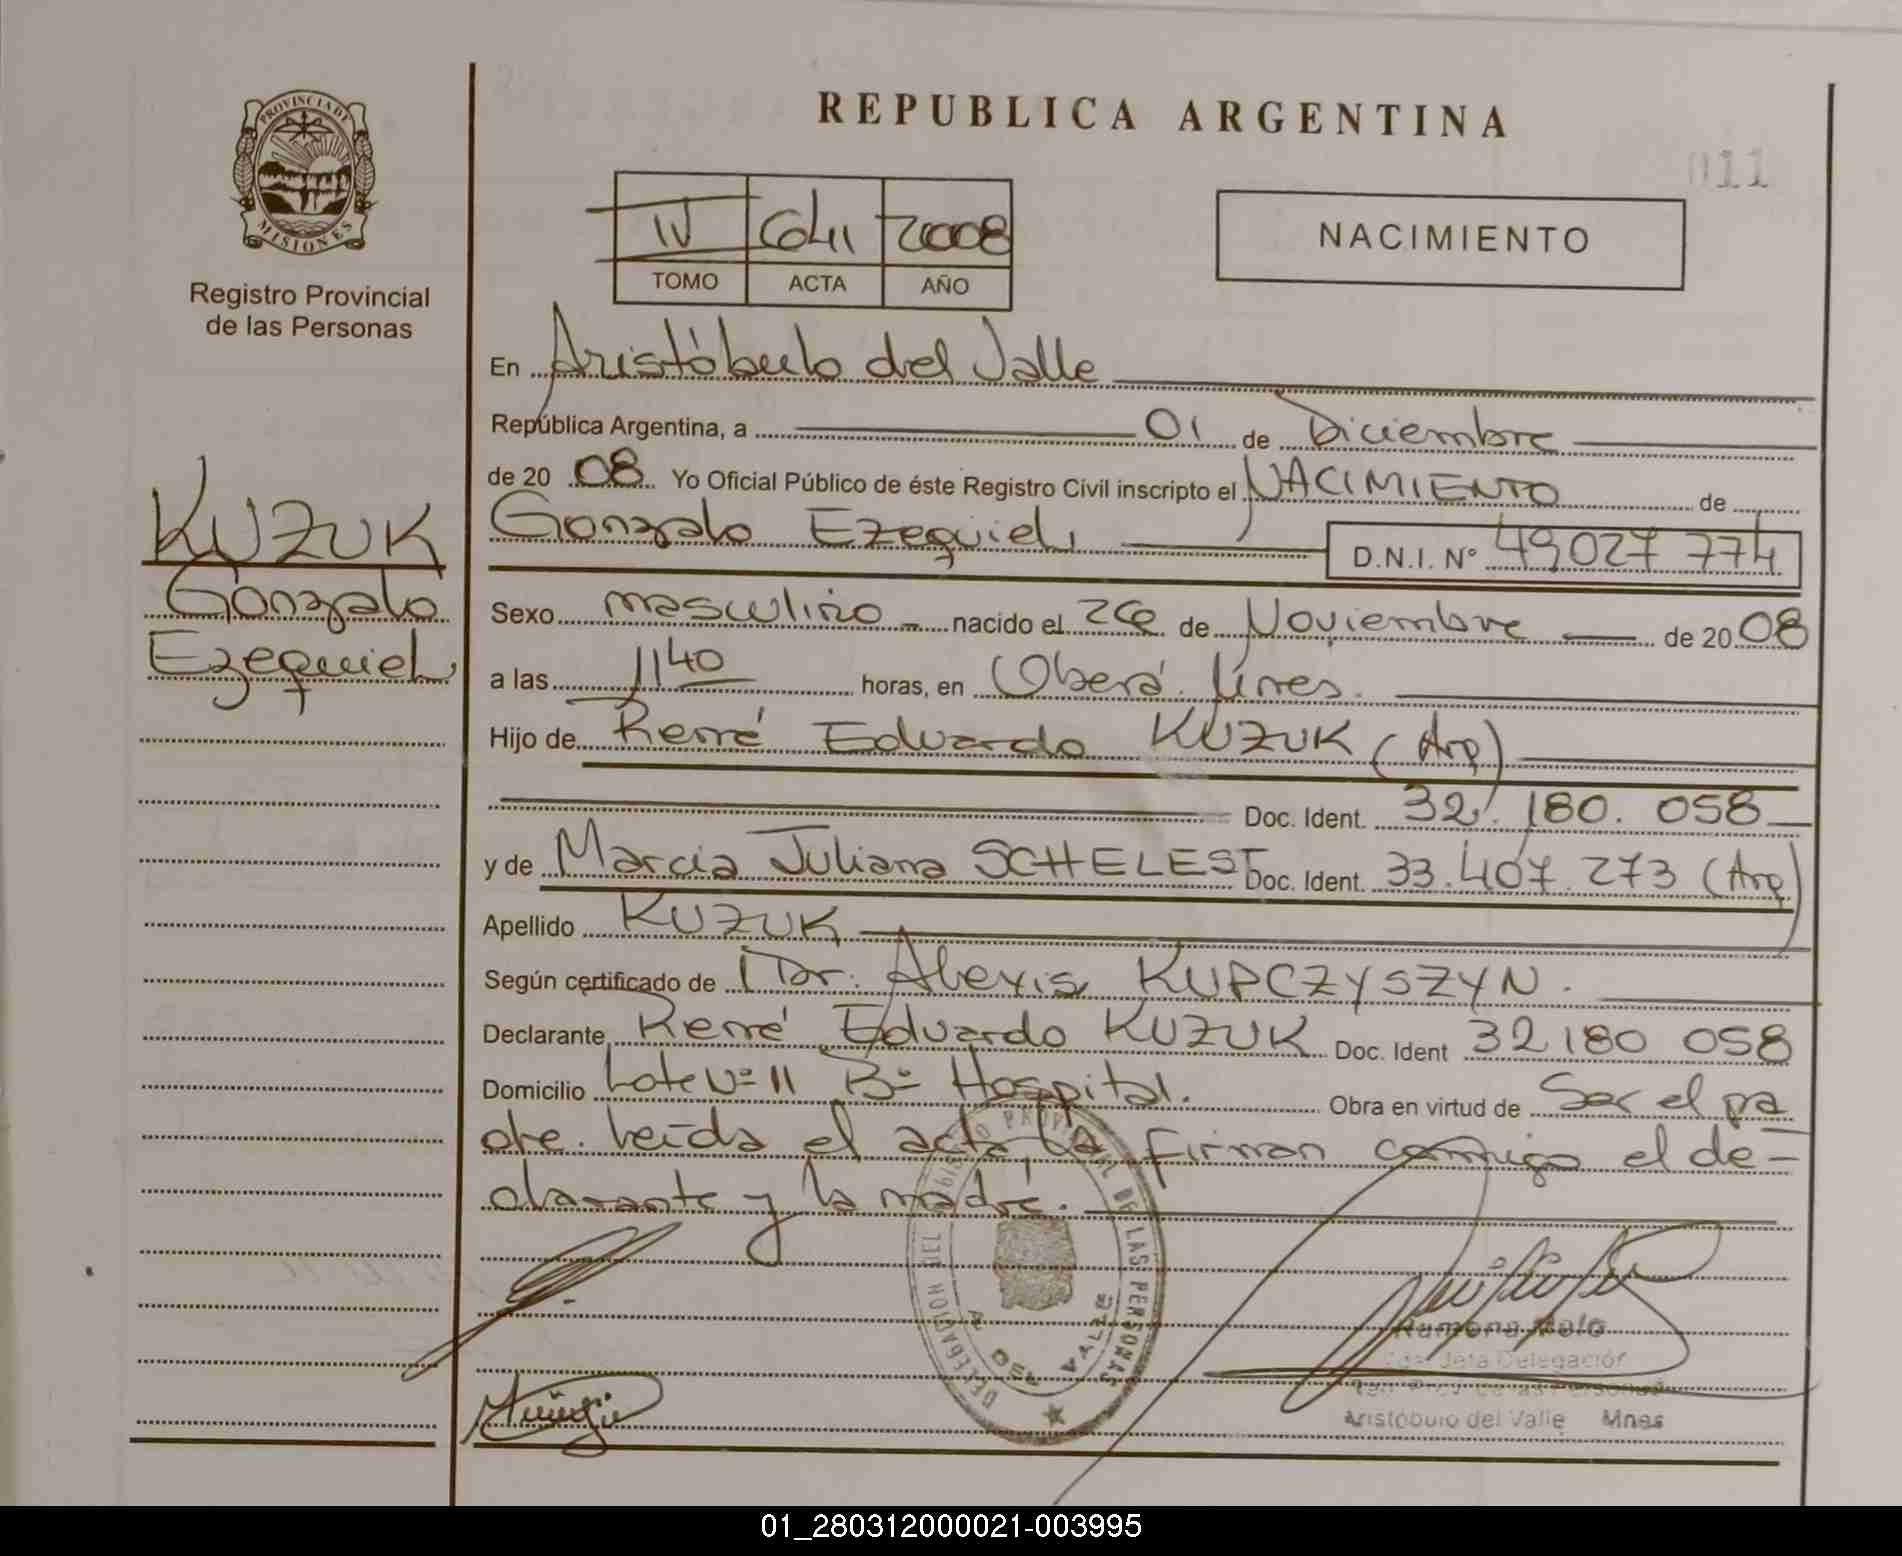 REPUBLICA ARGENTINA
011
PROVINCIA DE MISIONES
Registro Provincial
de las Personas
IV 2008
TOMO ACTA AÑO
NACIMIENTO
En Aristóbulo del Valle
República Argentina, a 01 de Diciembre
de 2008 Yo Oficial Público de éste Registro Civil inscripto el NACIMIENTO de
Gonzalo Ezequiel D.N.I. N° 49027 774
KUZUK
Gonzalo
Ezequiel
Sexo masculino nacido el 26 de Noviembre de 2008
a las 11 40 horas, en Oberá
Hijo de René Eduardo KUZUK (Arg)
Doc. Ident. 32.180.058
y de Marcia Juliana SCHELEST Doc. Ident. 33.407.273 (Arg)
Apellido KUZUK
Según certificado de Dr. Alexis KUPCZYSZYN.
Declarante René Eduardo KUZUK Doc. Ident 32180 058
Domicilio Lote Nº 11 Bº Hospital. Obra en virtud de Ser el pa
dre. Leída el acta, la firman conmigo el de-
clarante y la madre.
DELEGACION DEL REGISTRO PROVINCIAL DE LAS PERSONAS
A. DEL VALLE
Ramona Melo
Jefa Delegación
Reg. Prov. de las Personas
Aristóbulo del Valle Mnes
01_280312000021-003995